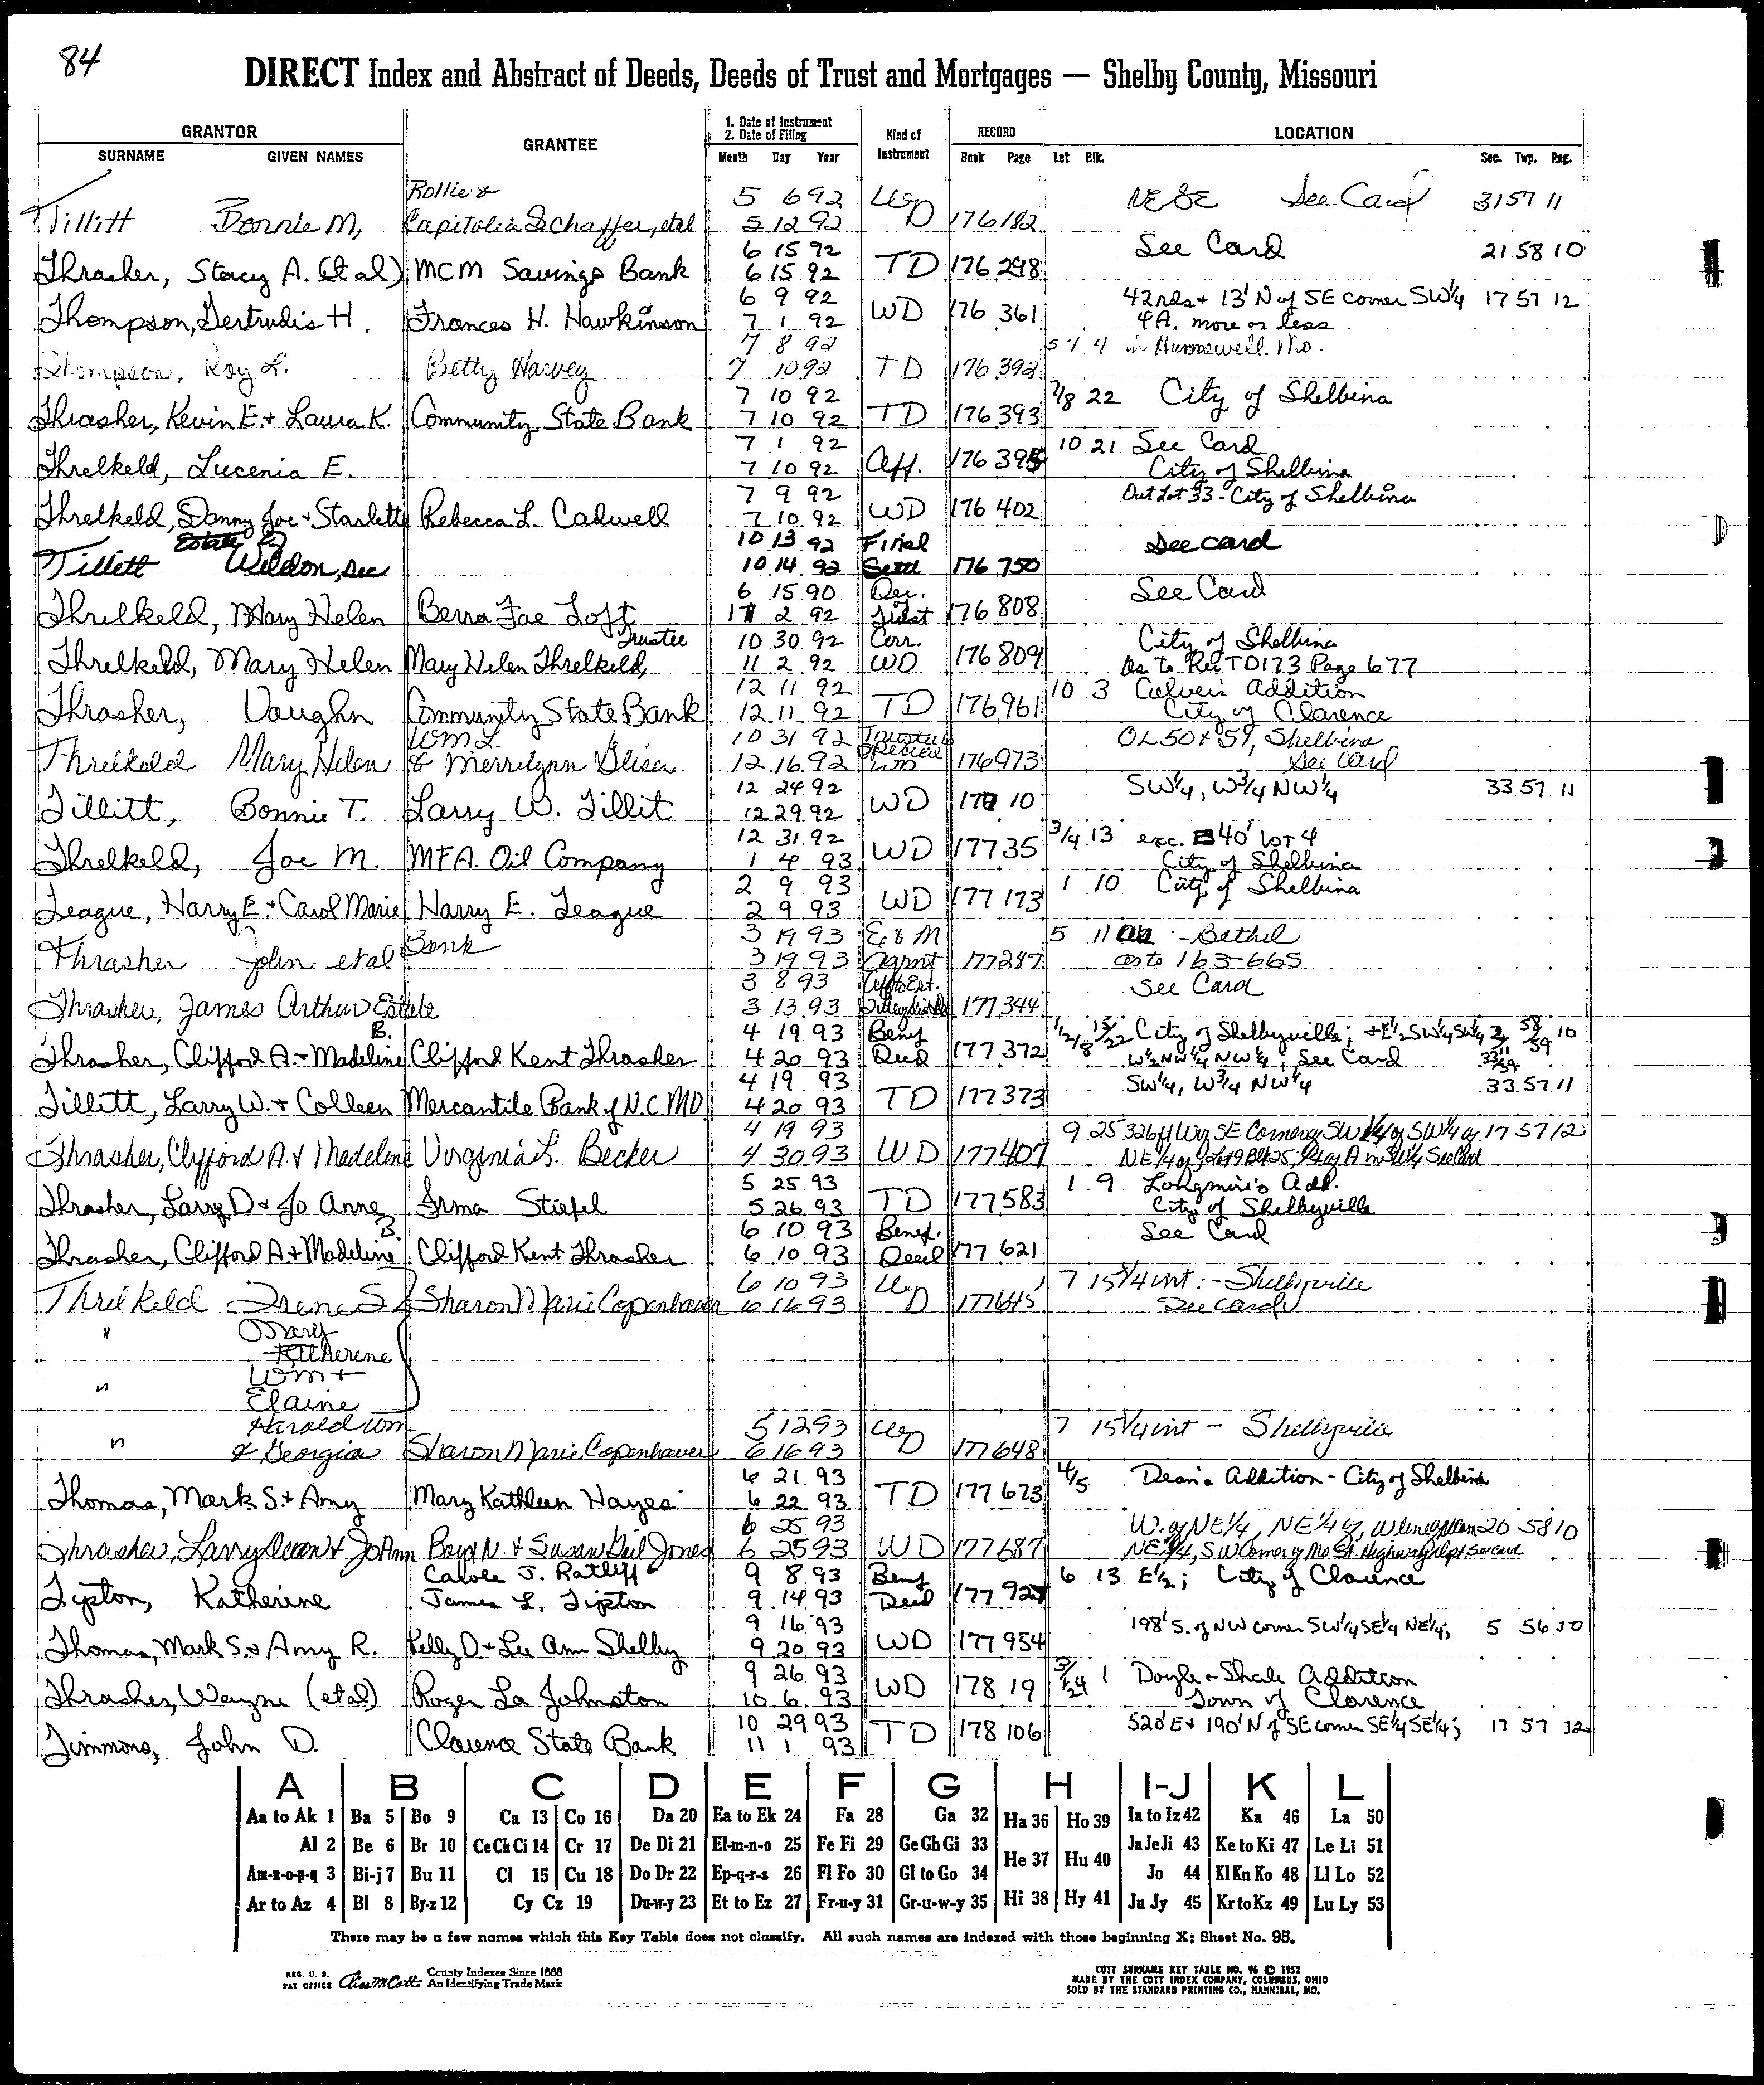 84
DIRECT Index and Abstract of Deeds, Deeds of Trust and Mortgages — Shelby County, Missouri
GRANTOR GRANTEE 1. Date of Instrument 2. Date of Filing Kind of Instrument RECORD LOCATION
SURNAME GIVEN NAMES Month Day Year Book Page Lot Blk. Sec. Twp. Rng.
Rollie & 5 6 92 NESE See Card 31 57 11
Tillitt Bonnie M, Capitolia Schaffer, etal 5 12 92 D 176 182
6 15 92 See Card 21 58 10
Thrasher, Stacy A. (et al) MCM Savings Bank 6 15 92 TD 176 248
6 9 92 42 rds + 13' N of SE corner SW 1/4 17 57 12
Thompson, Gertrudis H. Frances H. Hawkinson 7 1 92 WD 176 361 4A. more or less
7 8 92 5 1 4 in Hunnewell. Mo.
Thompson, Roy L. Betty Harvey 7 10 92 TD 176 392
7 10 92 7/8 22 City of Shelbina
Thrasher, Kevin E. + Laura K. Community State Bank 7 10 92 TD 176 393
7 1 92 10 21 See Card
Threlkeld, Lucenia E. 7 10 92 Aff. 176 395 City of Shelbina
7 9 92 Out Lot 33 - City of Shelbina
Threlkeld, Danny Joe + Starlett Rebecca L. Cadwell 7 10 92 WD 176 402
Estate of 10 13 92 Final See card
Tillett Weldon, Dec 10 14 92 Settl 176 750
6 15 90 Dec. See Card
Threlkeld, Mary Helen Berra Fae Loft 11 2 92 Trust 176 808
Trustee 10 30 92 Corr. City of Shelbina
Threlkeld, Mary Helen Mary Helen Threlkeld, 11 2 92 WD 176 809 As to Rec TD173 Page 677
12 11 92 10 3 Culver's Addition
Thrasher, Vaughn Community State Bank 12 11 92 TD 176 961 City of Clarence
Wm L. 10 31 92 Trustee Special OL 50 + 51, Shelbina
Threlkeld Mary Helen & Merrilynn 12 16 92 WD 176 973 See Card
12 24 92 SW 1/4, W 3/4 NW 1/4 33 57 11
Tillitt, Bonnie T. Larry W. Tillit 12 29 92 WD 177 10
12 31 92 3/4 13 exc. 40' lot 4
Threlkeld, Joe M. MFA. Oil Company 1 4 93 WD 177 35 City of Shelbina
2 9 93 1 10 City of Shelbina
Teague, Harry E. + Carol Marie Harry E. Teague 2 9 93 WD 177 173
Bank 3 19 93 E & M 5 11 - Bethel
Thrasher John etal 3 19 93 Agmt 177 247 as to 163-665
3 8 93 See Card
Thrasher, James Arthur Estate 3 13 93 177 344
B. 4 19 93 Benf City of Shelbyville; + E 1/2 SW 1/4 SW 1/4
Thrasher, Clifford A. + Madeline Clifford Kent Thrasher 4 20 93 Deed 177 372 W 1/2 NW 1/4 NW 1/4; See Card
4 19 93 SW 1/4, W 3/4 NW 1/4 33 57 11
Tillitt, Larry W. + Colleen Mercantile Bank of N.C. MO 4 20 93 TD 177 373
4 19 93 9 25 326 ft W of SE Corner of SW 1/4 of SW 1/4 of 17 57 12
Thrasher, Clifford A. & Madeline Virginia L. Becker 4 30 93 WD 177 407 NE 1/4 of Lot 9 Blk 25;
5 25 93 1 9 Longmire's Add.
Thrasher, Larry D + Jo Anne Irma Stiefel 5 26 93 TD 177 583 City of Shelbyville
B. 6 10 93 Benef. See Card
Thrasher, Clifford A. + Madeline Clifford Kent Thrasher 6 10 93 Deed 177 621
6 10 93 7 15 1/4 int: - Shelbyville
Threlkeld Irene S Sharon Marie Copenhaver 6 16 93 D 177 645 See Card
" Mary
Katherine
" Wm +
Elaine
Harold Wm 5 12 93 7 15 1/4 int - Shelbyville
" & Georgia Sharon Marie Copenhaver 6 16 93 D 177 648
6 21 93 4/5 Dean's Addition - City of Shelbina
Thomas, Mark S. + Amy Mary Kathleen Hayes 6 22 93 TD 177 673
6 25 93 W. of NE 1/4, NE 1/4 of, W line 20 58 10
Thrasher, Larry Dean & JoAnn Boyd N & Susan Gail Jones 6 25 93 WD 177 687 NE 1/4, SW Corner of Mo St. Highway Dpt See card
Carole J. Ratliff 9 8 93 Benf 6 13 E 1/2; City of Clarence
Tipton, Katherine James L. Tipton 9 14 93 Deed 177 927
9 16 93 198' S. of NW corner SW 1/4 SE 1/4 NE 1/4; 5 56 10
Thomas, Mark S. & Amy R. Kelly D. + Lee Ann Shelby 9 20 93 WD 177 954
9 26 93 3/24 1 Doyle + Shale Addition
Thrasher, Wayne (etal) Roger La Johnston 10 6 93 WD 178 19 Town of Clarence
10 29 93 520' E + 190' N of SE corner SE 1/4 SE 1/4; 17 57 12
Timmons, John D. Clarence State Bank 11 1 93 TD 178 106
A B C D E F G H I-J K L
Aa to Ak 1 Ba 5 Bo 9 Ca 13 Co 16 Da 20 Ea to Ek 24 Fa 28 Ga 32 Ha 36 Ho 39 Ia to Iz 42 Ka 46 La 50
Al 2 Be 6 Br 10 Ce Ch Ci 14 Cr 17 De Di 21 El-m-n-o 25 Fe Fi 29 Ge Gh Gi 33 He 37 Hu 40 Ja Je Ji 43 Ke to Ki 47 Le Li 51
Am-n-o-p-q 3 Bi-j 7 Bu 11 Cl 15 Cu 18 Do Dr 22 Ep-q-r-s 26 Fl Fo 30 Gl to Go 34 Jo 44 Kl Kn Ko 48 Ll Lo 52
Ar to Az 4 Bl 8 By-z 12 Cy Cz 19 Du-w-y 23 Et to Ez 27 Fr-u-y 31 Gr-u-w-y 35 Hi 38 Hy 41 Ju Jy 45 Kr to Kz 49 Lu Ly 53
There may be a few names which this Key Table does not classify. All such names are indexed with those beginning X; Sheet No. 95.
REG. U. S. PAT OFFICE County Indexes Since 1888 An Identifying Trade Mark
COTT SURNAME KEY TABLE NO. 96 © 1952
MADE BY THE COTT INDEX COMPANY, COLUMBUS, OHIO
SOLD BY THE STANDARD PRINTING CO., HANNIBAL, MO.